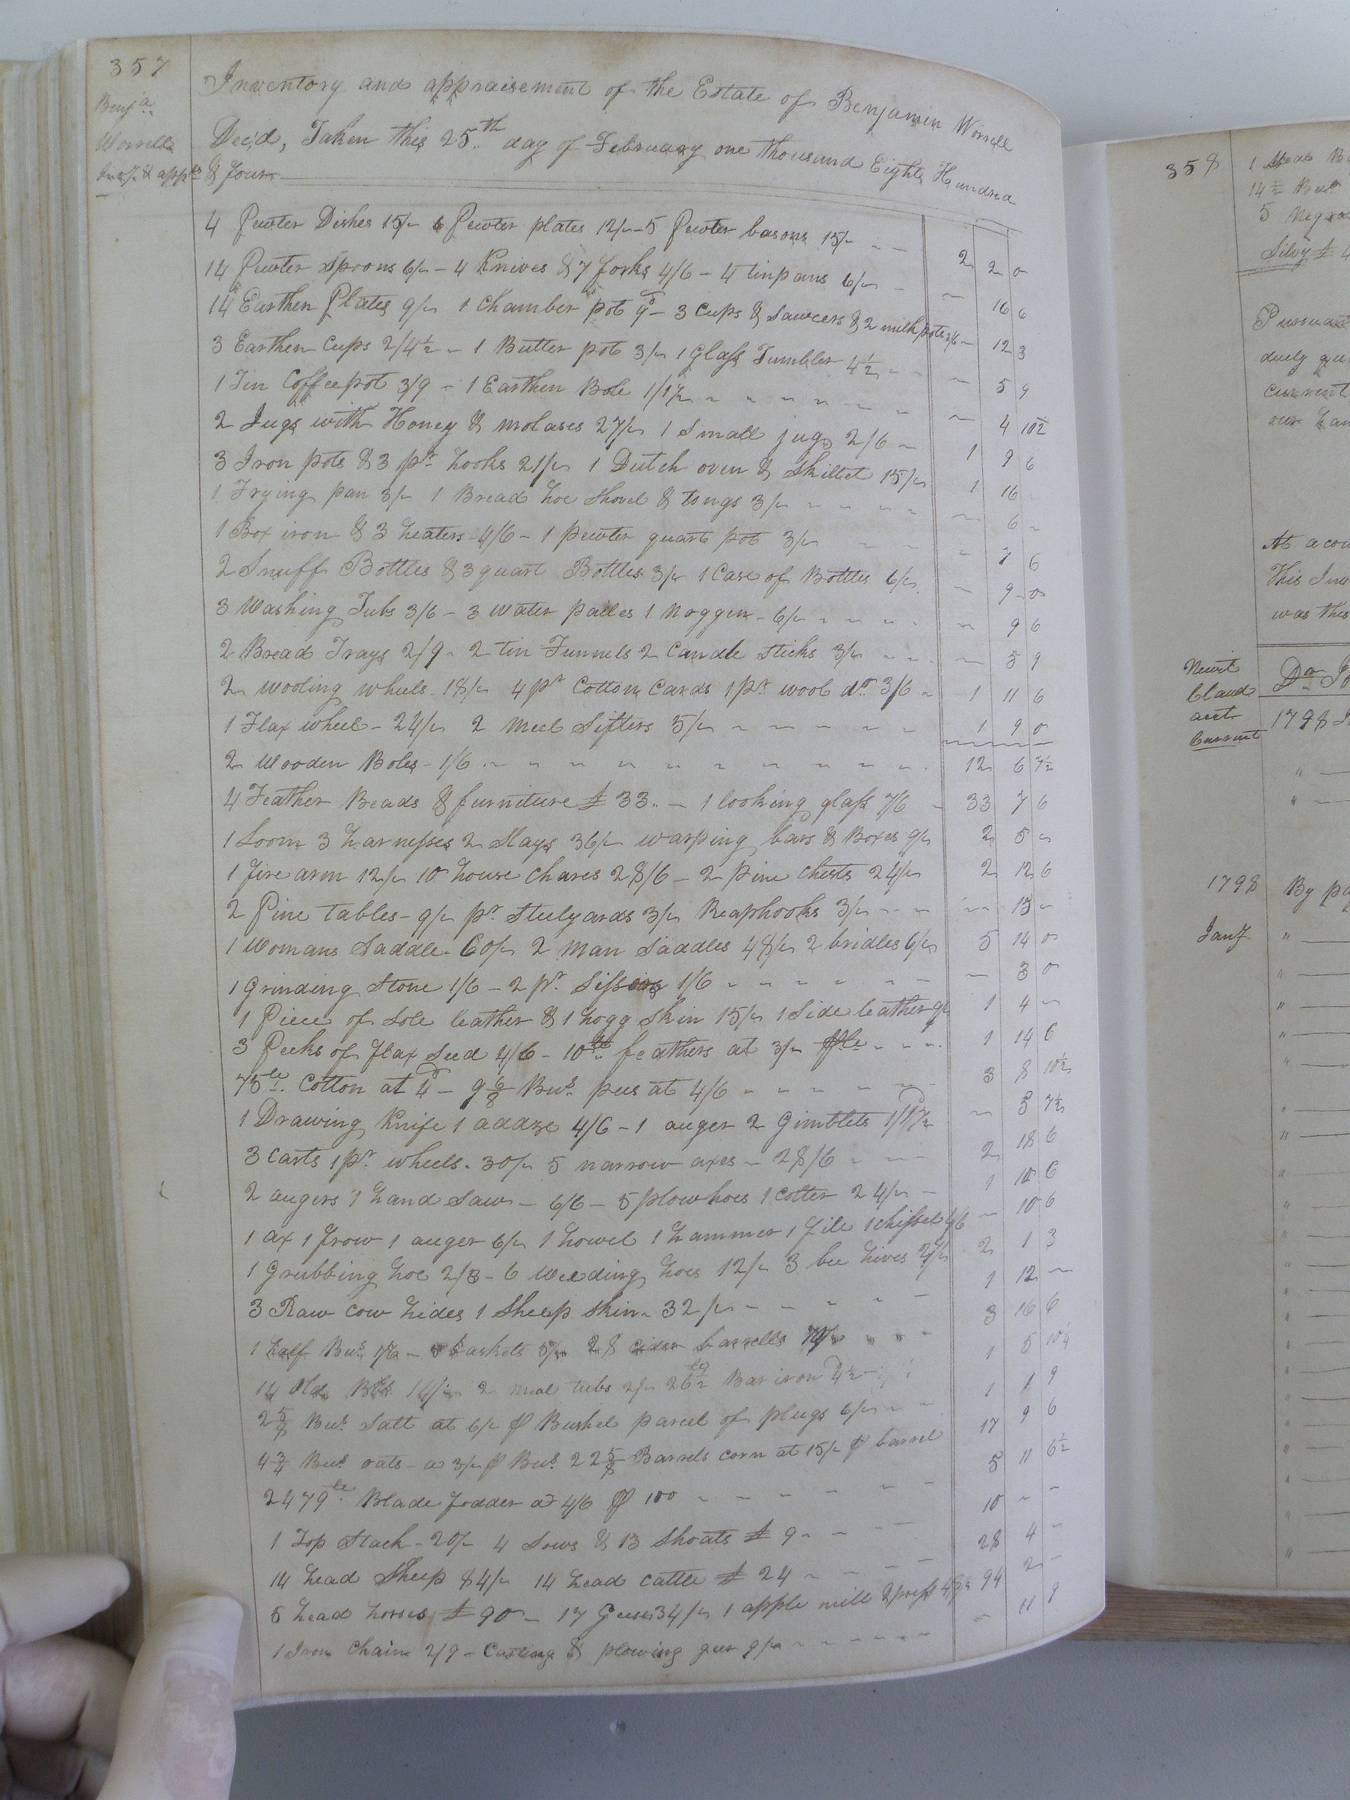 357
Benja.
Worrells
Inv.y & appt
Inventory and appraisement of the Estate of Benjamin Worrell
Decd, Taken this 25th day of February one thousand Eight Hundred
& four
4 Pewter Dishes 15/ 6 Pewter plates 12/ - 5 Pewter basons 15/ 2 2 0
14 Pewter Spoons 6/ - 4 Knives & 7 forks 4/6 - 4 tinpans 6/ 16 6
14 Earthen Plates 9/ 1 Chamber pot 9d - 3 Cups & Sawcers & 2 milk pots 2/6 - 12 3
3 Earthen Cups 2/4½ - 1 Butter pot 3/ 1 Glass Tumbler 4½ 5 9
1 Tin Coffeepot 3/9 - 1 Earthen Bole 1/1½ 4 10½
2 Jugs with Honey & molases 27/ 1 Small jug 2/6 1 9 6
3 Iron pots & 3 pr. hooks 21/ 1 Dutch oven & Skillet 15/ 1 16
1 Frying pan 3/ 1 Bread hoe Shovel & tongs 3/ 6
1 Box iron & 3 heaters 4/6 - 1 pewter quart pot 3/ 7 6
2 Snuff Bottles & 3 quart Bottles 3/ 1 Case of Bottles 6/ 9 - 0
3 Washing Tubs 3/6 - 3 water pailes 1 Noggen - 6/ 9 6
2 Bread Trays 2/9 - 2 tin Funnels 2 Candle Sticks 3/ 5 9
2 wooling wheels - 18/ 4 pr Cotton Cards 1 pr. wool do. 3/6 1 11 6
1 Flax wheel - 24/ 2 Meel Sifters 5/ 1 9 0
2 Wooden Boles - 1/6 12 6 7½
4 Feather Beads & furniture £ 33.. - 1 looking glass 7/6 33 7 6
1 Loom 3 harnesses 2 Slays 36/ warping bars & Boxes 9/ 2 5
1 fire arm 12/ 10 house Chares 28/6 - 2 pine Chests 24/ 2 12 6
2 Pine Tables - 9/ pr. Steelyards 3/ Reaphooks 3/ 15
1 Womans Saddle - 60/ 2 Man Saddles 48/ 2 bridles 6/ 5 14 0
1 Grindeng Stone 1/6 - 2 pr. 1/6 3 0
1 Piece of Sole leather & 1 hogg Skin 15/ 1 Side leather 9/ 1 4
3 Peeks of Flax Seed 4/6 - 10 feathers at 3/ 1 14 6
75le. Cotton at - 9 6/8 Bus. pees at 4/6 3 8 10½
1 Drawing Knife 1 addze 4/6 - 1 auger 2 Gimblets 1/1½ 5 7½
3 Carts 1 pr. wheels - 30/ 5 narrow axes - 28/6 2 18 6
2 augers 1 hand Saw - 6/6 - 5 plowhoes 1 Colter 24/ 1 10 6
1 ax 1 frow 1 auger 6/ 1 howel 1 hammer 1 file 1 Chissel 4/6 10 6
1 Grubbing hoe 2/3 - 6 Weeding hoes 12/ 3 bee hives 2 1 3
3 Raw Cow hides 1 Sheep Skin - 32/ 1 12
1 half Bus. - baskets 28 cider barrells 3 16 6
14 Old 2 meal tubs 2/ 26½ Bar iron 4½ 1 5 10¼
2 5/8 Bus. Salt at 6/ Bushel parcel of plugs 6/ 1 1 9
4¾ Bus. oats - a 3/ Bus. 22 5/8 Barrels corn at 15/ barrel 17 9 6
2479le. Blade fodder a 4/6 100 5 11 6½
1 Top Stack - 20/ 4 Sows & 13 Shoats £ 9 10
14 head Sheep 84/ 14 head cattle £ 24 28 4
5 head horses £ 90 - 17 Geese 34/ 1 apple mill & press 94 2
1 Iron Chain 2/9 - & plowing geer 9/ 11 8
358
14½
5
Silvy £
Pursuant
duely
current
our
At a cou
This Inv
was this
acct
Current
1798
1798 By
Jany